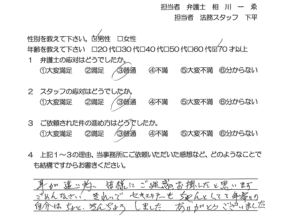 担当者 弁護士 相川一幸
担当者 法務スタッフ 下平
性別を教えて下さい。 ☑男性 □女性
年齢を教えて下さい □20代□30代□40代□50代□60代☑70才以上
1 弁護士の応対はどうでしたか。
①大変満足 ②満足 ③普通 ④不満 ⑤大変不満 ⑥分からない
2 スタッフの応対はどうでしたか。
①大変満足 ②満足 ③普通 ④不満 ⑤大変不満 ⑥分からない
3 ご依頼された件の進め方はどうでしたか。
①大変満足 ②満足 ③普通 ④不満 ⑤大変不満 ⑥分からない
4 上記1～3の理由、当事務所にご依頼いただいた感想など、どのようなことで
も結構ですからお書きください。
耳が遠い為 皆様にご迷惑お掛したと思います
ごめんなさい きれいで セキュリテーも ちゃんとしてて
しました ありがとうございました